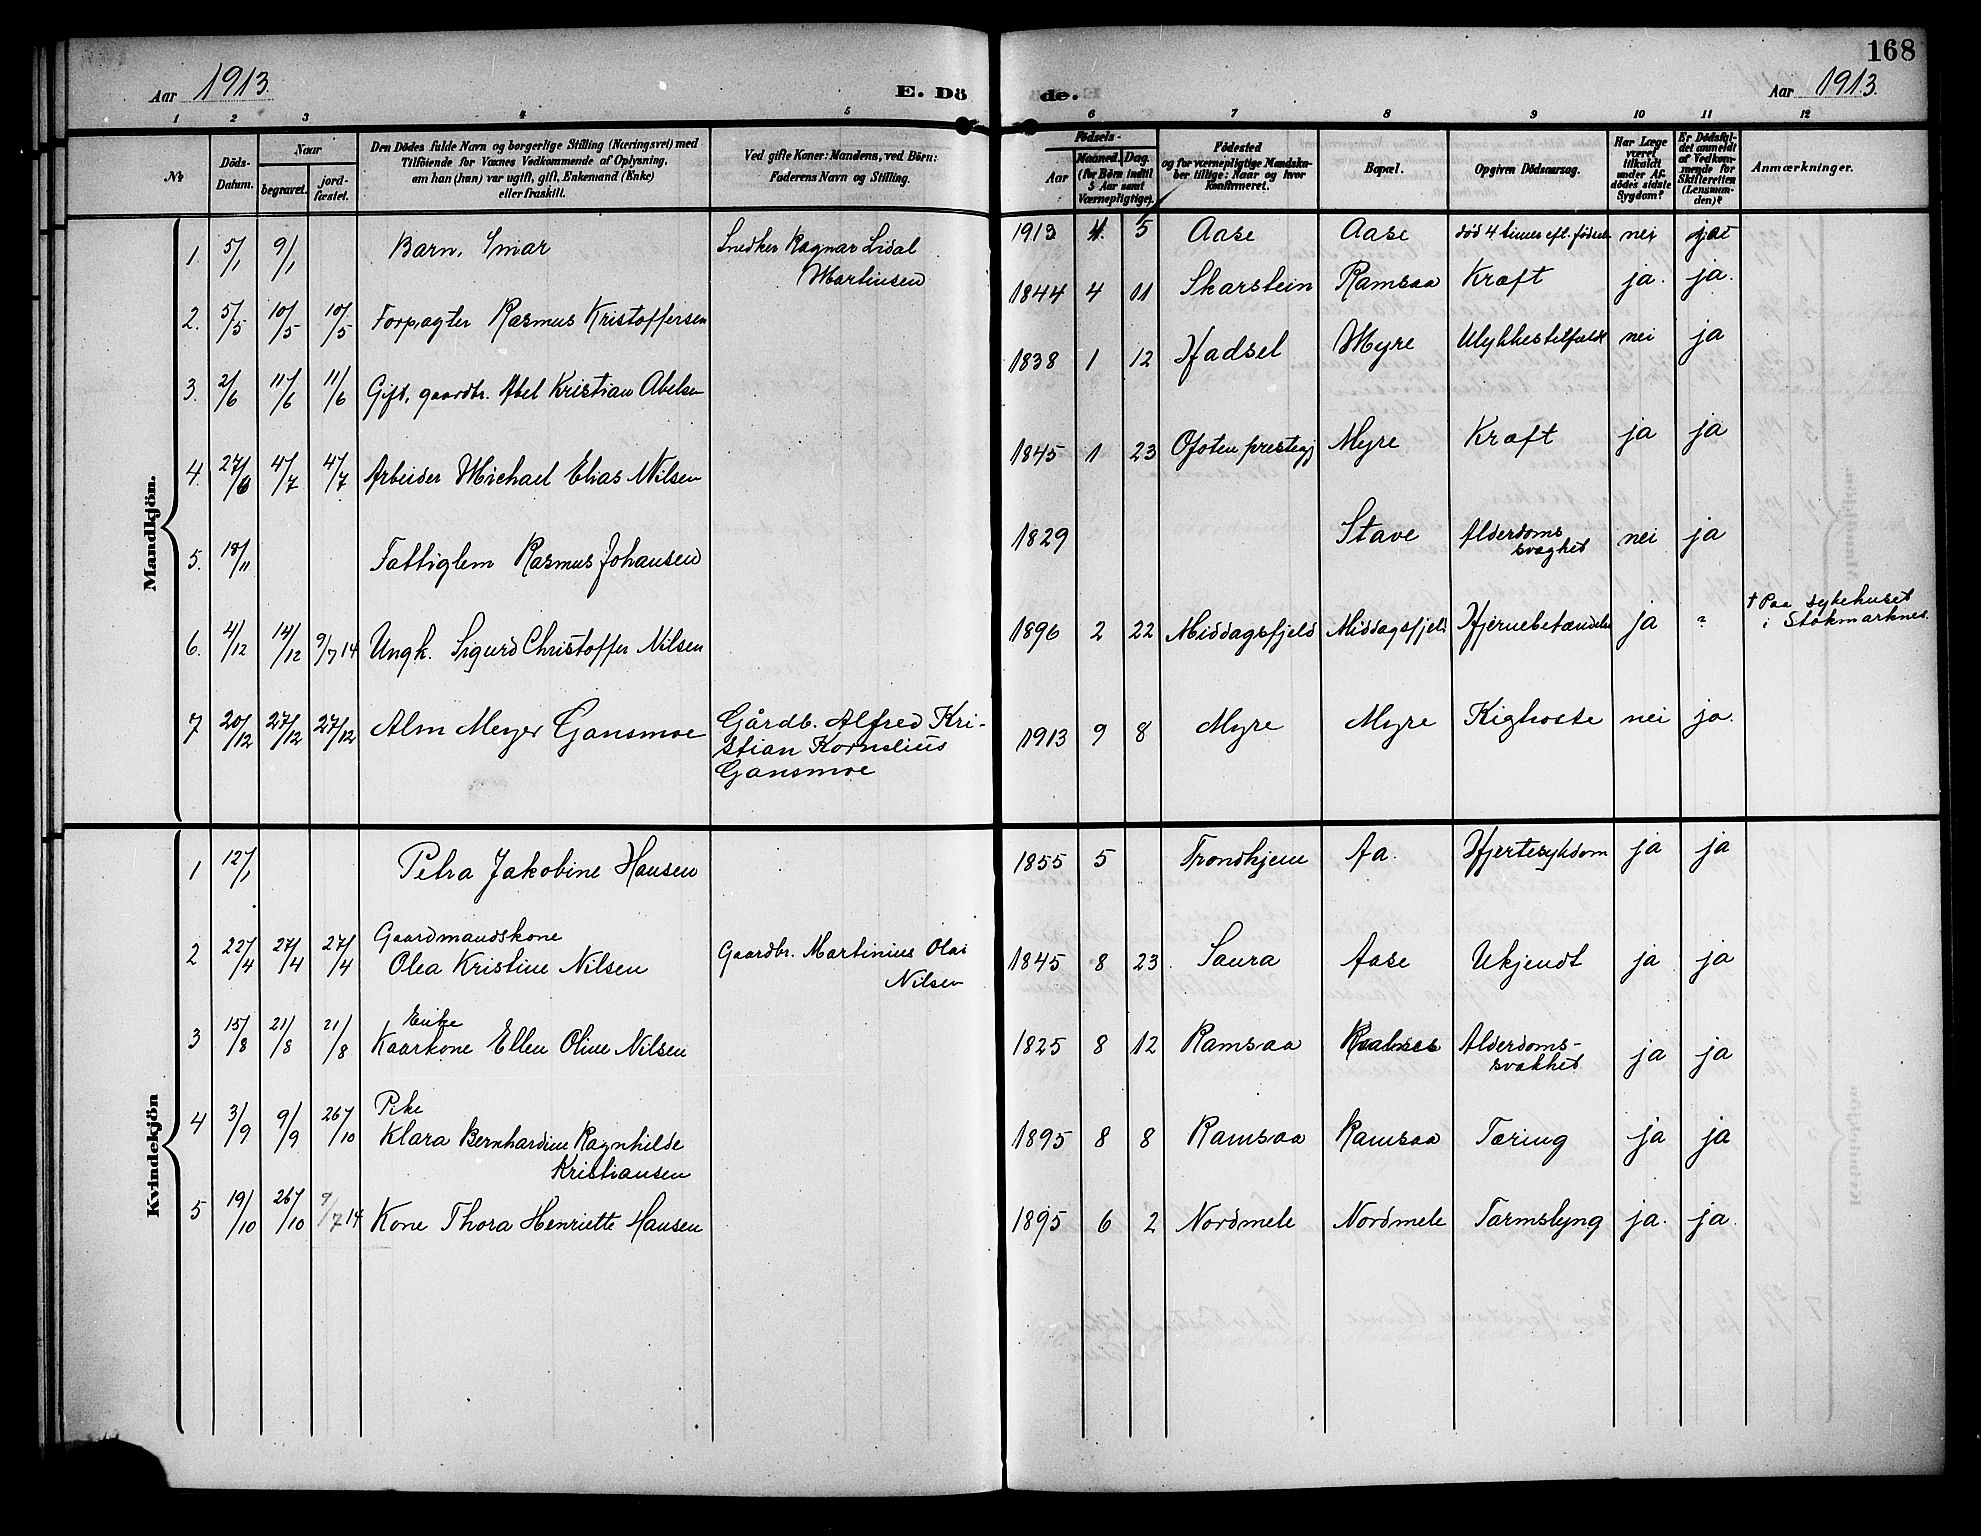 168
Aar 1913. E. Dö de. Aar 1913.
1 2 3 4 5 6 7 8 9 10 11 12
No
Döds-Datum.
Naar
begravet.
jord-fæstet.
Den Dödes fulde Navn og borgerlige Stilling (Næringsvei) med
Tilföiende for Voxnes Vedkommende af Oplysning,
om han (hun) var ugift, gift, Enkemand (Enke)
eller fraskilt.
Ved gifte Koner: Mandens, ved Börn:
Faderens Navn og Stilling.
Födsels-
Aar
Maaned. Dag.
(for Börn indtil
5 Aar samt
Værnepligtige).
Födested
og for værnepligtige Mandska-
ber tillige: Naar og hvor
konfirmeret.
Bopæl.
Opgiven Dödsaarsag.
Har Læge
været
tilkaldt
under Af-
dödes sidste
Sygdom?
Er Dödsfal-
det anmeldt
af Vedkom-
mende for
Skifteretten
(Lensman-
den)?
Anmærkninger.
Mandkjön.
1 5/1 9/1 Barn, Smar Snedker Ragnar Lidal
Martinsen
1913 4. 5 Aase Aase død 4 timer eft. fødsel nei ja
2. 5/5 10/5 10/5 Forpagter Rasmus Kristoffersen 1844 4 11 Skarstein Ramsaa Kræft ja. ja.
3. 2/6 11/6 11/6 Gift, gaardbr. Abel Kristian Abelsen 1838 1 12 Hadsel Myre Ulykkestilfælde nei ja
4. 27/6 4/7 4/7 Arbeider Michael Elias Nilsen 1845 1 23 Ofoten prestegj Myre Kræft ja ja
5. 18/11 Fattiglem Rasmus Johansen 1829 Stave Alderdoms
svaghet nei ja
6. 4/12 14/12 9/7 14 Ungk. Sigurd Christoffer Nilsen 1896 2 22 Middagsfjeld Middagsfjeld Hjernebetændelse ja ? † Paa sykehuset
i Stokmarknes.
7 20/12 27/12 27/12 Alm Meyer Gansmoe Gårdb. Alfred Kri-
stian Kornelius
Gansmoe
1913 9 8 Myre Myre Kighoste nei ja.
Kvindekjön
1 12/1 Petra Jakobine Hansen 1855 5 Trondhjem Aa. Hjertesykdom ja ja
2 22/4 27/4 27/4 Gaardmandskone
Olea Kristine Nilsen Gaardbr. Martinius Olai
Nilsen
1845 8 23 Saura Aase Ukjendt ja ja
3 15/8 21/8 21/8 Enke
Kaarkone Ellen Oline Nilsen 1825 8 12 Ramsaa Alderdoms-
svakhet ja ja
4 3/9 9/9 26/10 Pike
Klara Bernhardine Ragnhilde
Kristiansen
1895 8 8 Ramsaa Ramsaa Tæring ja ja
5 19/10 26/10 9/7 14 Kone Thora Henriette Hansen 1895 6 2 Nordmele Nordmele Tarmslyng ja. ja.